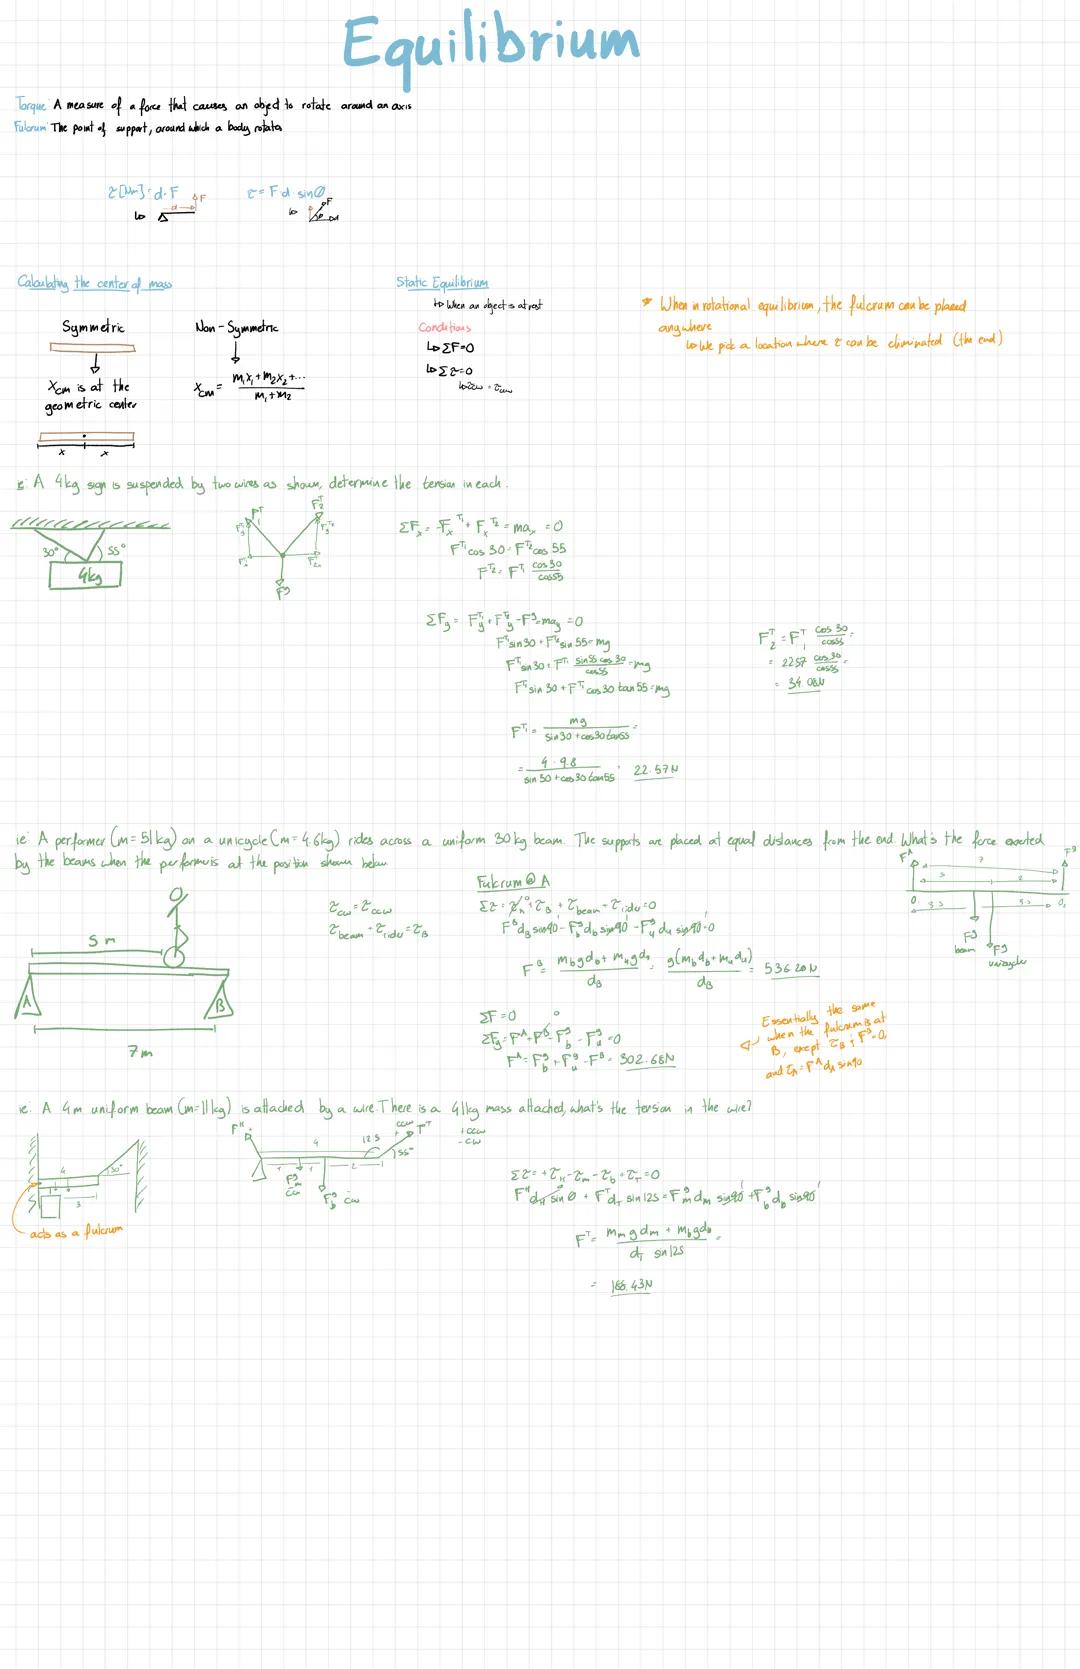 Equilibrium
Torque: A measure of a force that causes an object to rotate around an axis
Fulcrum: The point of support, around which a body rotates
τ[Nm] = d·F
τ = F d sinθ
Calculating the center of mass
Symmetric
Xcm is at the
geometric center
x x
Non-Symmetric
Xcm = (m₁x₁ + m₂x₂ + ...) / (m₁ + m₂)
Static Equilibrium
↳ When an object is at rest
Conditions
↳ ΣF=0
↳ Στ=0
↳ τcw = τccw
* When in rotational equilibrium, the fulcrum can be placed
anywhere
↳ We pick a location where τ can be eliminated (the end)
ie: A 4kg sign is suspended by two wires as shown, determine the tension in each.
30° 55°
4kg
ΣFx = -Fx^T₁ + Fx^T₂ = max = 0
F^T₁ cos 30 = F^T₂ cos 55
F^T₂ = F^T₁ cos30 / cos55
ΣFy = Fy^T₁ + Fy^T₂ - F^g = may = 0
F^T₁ sin30 + F^T₂ sin 55 = mg
F^T₁ sin30 + F^T₁ sin55 cos 30 / cos55 = mg
F^T₁ sin 30 + F^T₁ cos 30 tan 55 = mg
F^T₁ = mg / (sin30 + cos30 tan55) =
= 4·9.8 / (sin 30 + cos 30 tan 55) = 22.57N
F₂^T = F₁^T cos 30 / cos55 =
= 22.57 cos 30 / cos55 =
= 34.08N
ie: A performer (m=51kg) on a unicycle (m=4.6kg) rides across a uniform 30kg beam. The supports are placed at equal distances from the end. What's the force exerted
by the beams when the performer is at the position shown below.
5 m
A B
7m
τcw = τccw
τbeam + τrider = τB
Fulcrum @ A
Στ = τA + τB + τbeam + τrider = 0
F^B dB sin90 - Fb^g db sin90 - Fu^g du sin90 = 0
F^B = (mb g db + mu g du) / dB = g(mb db + mu du) / dB = 536.20N
ΣF = 0
ΣFy = F^A + F^B - Fb^g - Fu^g = 0
F^A = Fb^g + Fu^g - F^B = 302.68N
F^A F^B
7
5 2
3.5 3.5
Fg
beam
Fg
unicycler
Essentially the same
when the fulcrum is at
B, except τB; F^B=0,
and τA = F^A dA sin90
ie: A 4m uniform beam (m=11kg) is attached by a wire. There is a 41kg mass attached, what's the tension in the wire?
4
3
acts as a fulcrum
F^H
4 125
55°
1 1 2
+ccw
-cw
Στ = +τH - τm - τb + τT = 0
F^H dH sin θ + F^T dT sin 125 = Fm^g dm sin90 + Fb^g db sin90
F^T = (mm g dm + mb g db) / (dT sin 125) =